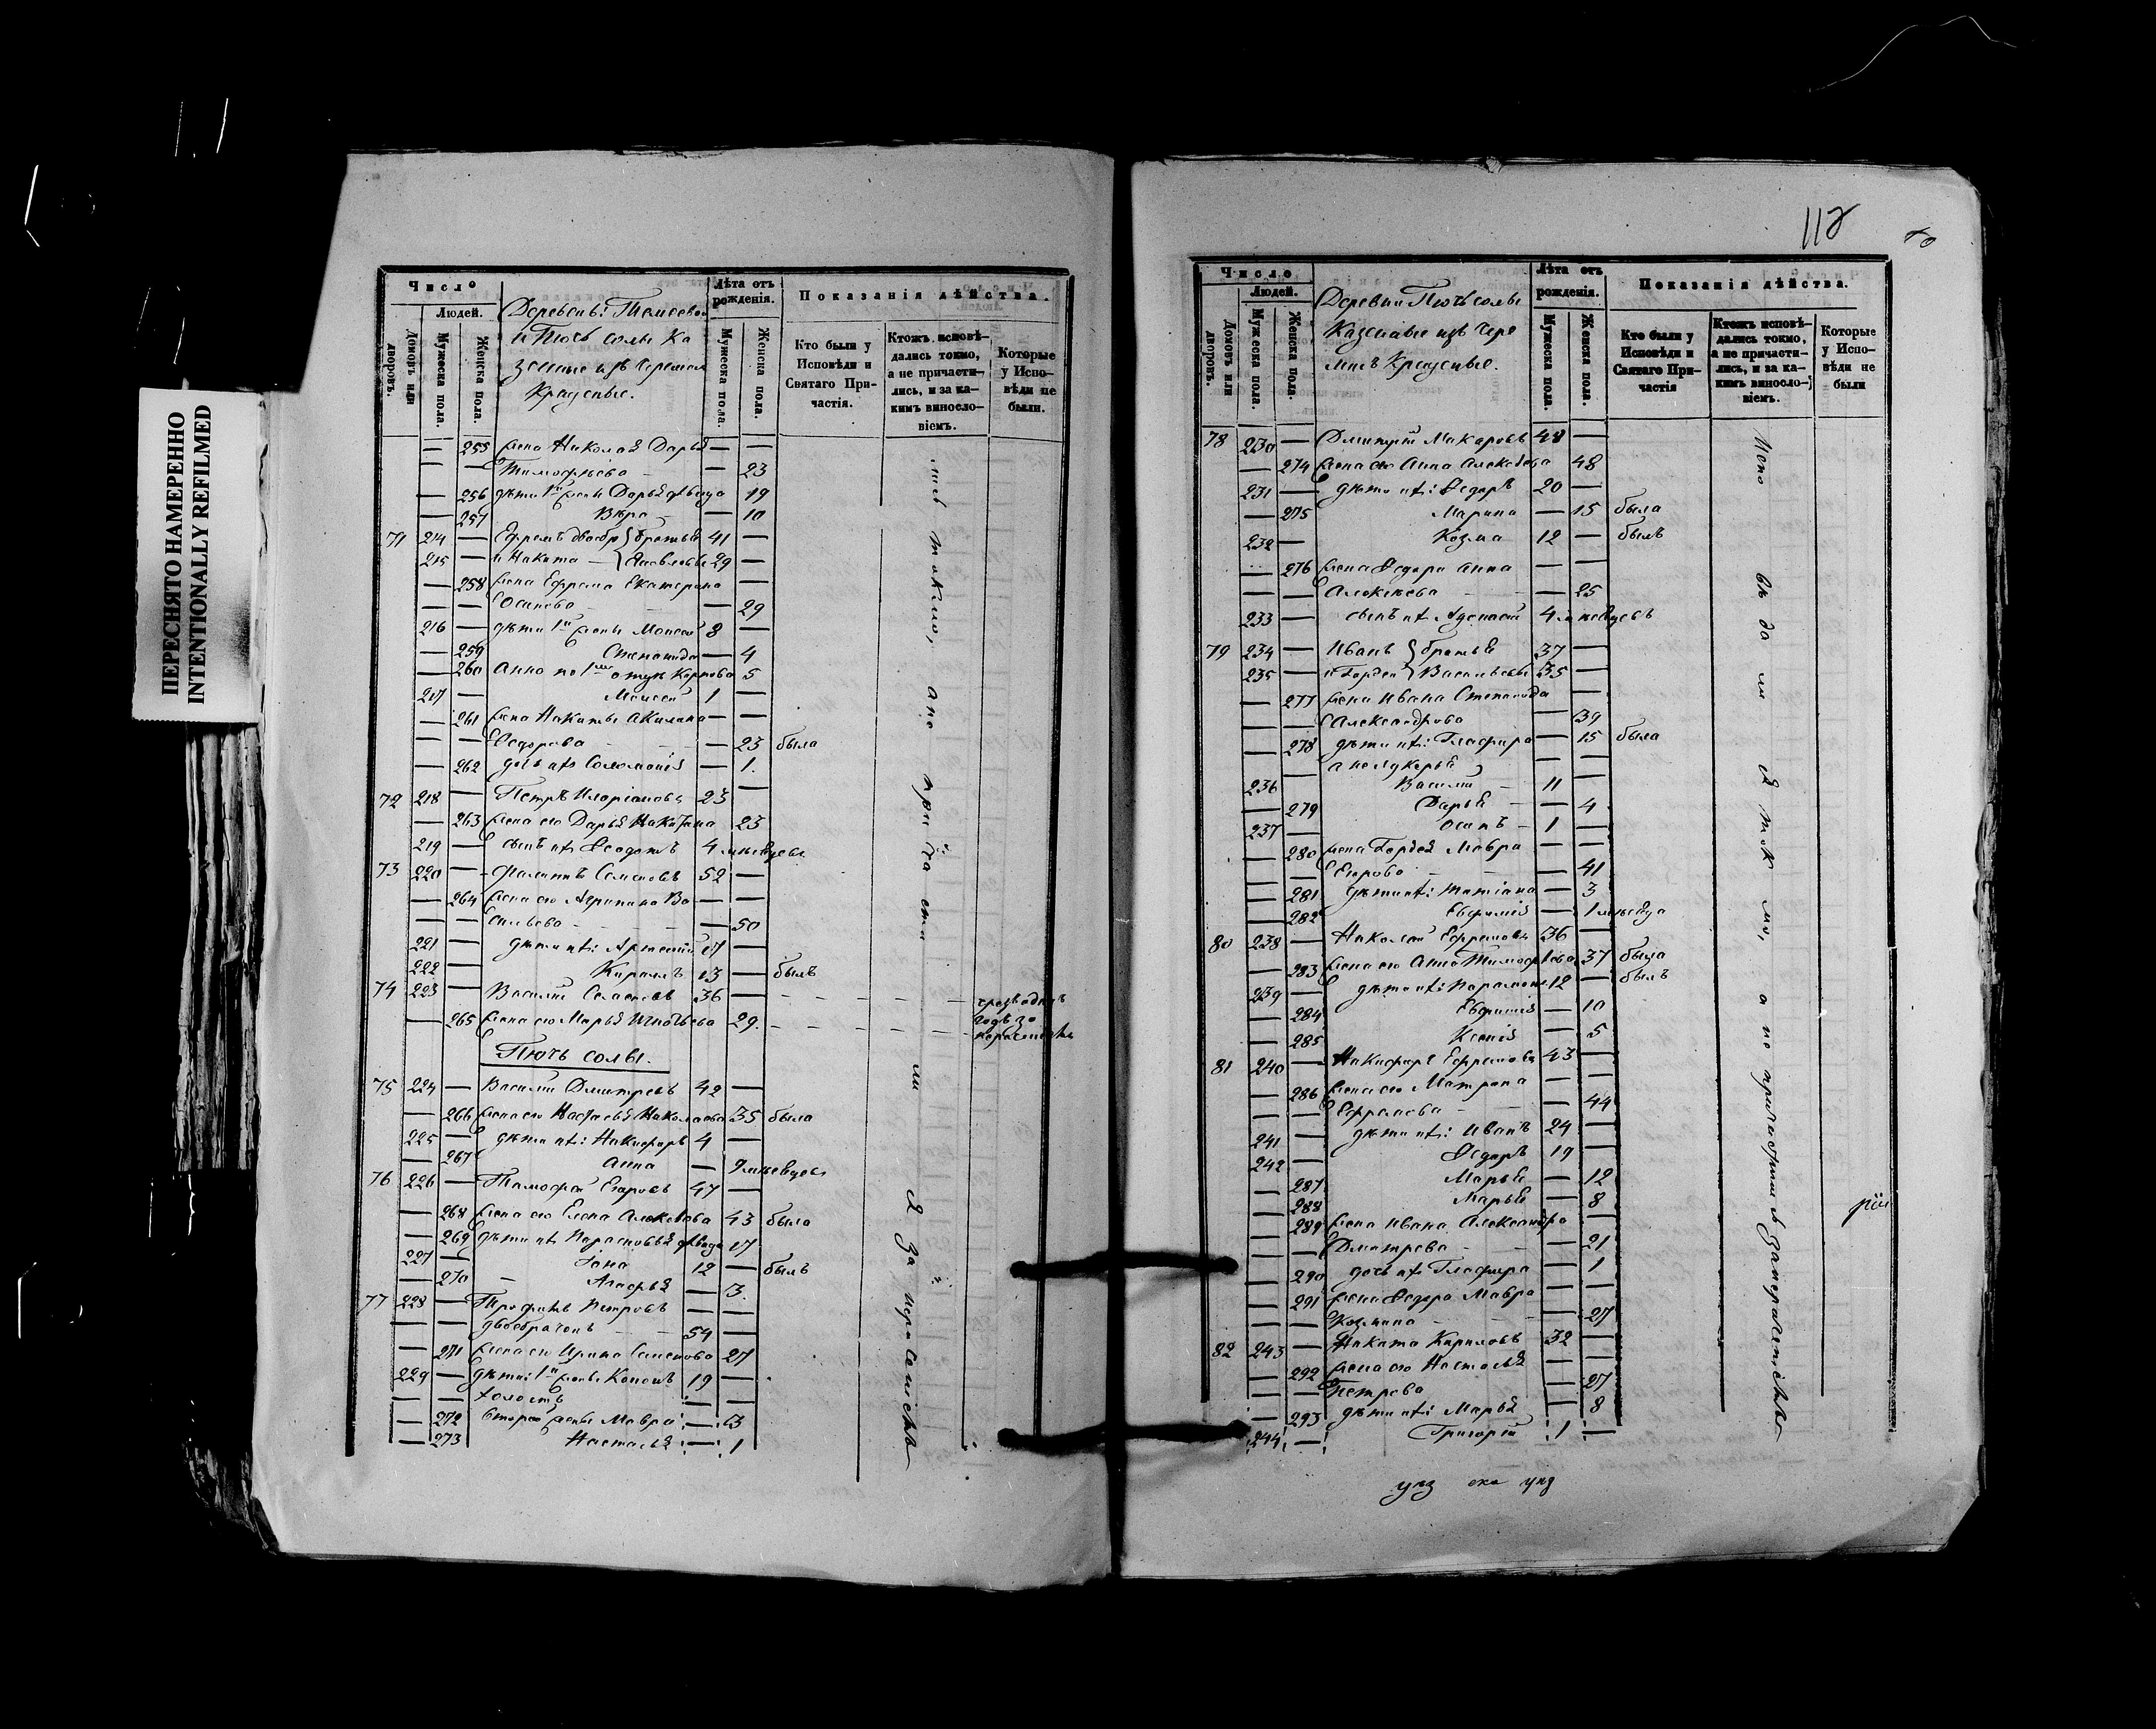 ПЕРЕСНЯТО НАМЕРЕННО
INTENTIONALLY REFILMED
Число
Людей.
Домовъ или дворовъ.
Мужеска пола.
Женска пола.
Лѣта отъ рожденія.
Мужеска пола.
Женска пола.
Показанія дѣйства.
Кто были у Исповѣди и Святаго Причастія.
Ктожъ исповѣдались токмо, а не причастились, и за какимъ винословіемъ.
Которые у Исповѣди не были.
Крещеные.
255 жена Николая Дарья
Тимофѣева 23
256 дѣти 1й жены Дарья дѣвица 19
257 Вѣра 10
71 214 Ефремъ двоебр братья 41
215 и Никита Яковлевы 29
258 жена Ефрема Екатерина
Осипова 29
216 дѣти 1й жены Моисей 8
259 Степанида 4
260 Анна 5
217 Моисей 1
261 жена Никиты Акилина
Ѳедорова 23 была
262 дочь ихъ Соломонія 1.
72 218 Петръ Иларіоновъ 23
263 жена его Дарья Никитина 23
219 сынъ ихъ Ѳеодотъ 4 мѣсяцевъ
73 220 Филиппъ Семеновъ 52
264 жена его Агрипина Ва
сильева 50
221 дѣти ихъ: Артемій 17
222 Кирилъ 13 былъ
74 223 Василій Семеновъ 36
265 жена его Марья Игнатьева 29.
Пютъ солы.
75 224 Василій Дмитревъ 42
266 жена его Настасья Николаева 35 была
225 дѣти ихъ: Никифоръ 4
267 Анна 9 мѣсяцевъ
76 226 Тимофей Егоровъ 47
268 жена его Елена Алексѣева 43 была
269 дѣти ихъ Парасковья дѣвица 17
227 Іона 12 былъ
270 Агафья 3.
77 228 Трофимъ Петровъ
двоебраченъ 54
271 жена его Ирина Семенова 27
229 дѣти: 1й жены Кононъ 19
холостъ
272 второй жены Мавра 3
273 Настасья 1
лись токмо, а не причастились за нерасеяніемъ
118
Число
Людей.
Домовъ или дворовъ.
Мужеска пола.
Женска пола.
Деревни Пютъ солы
Казенные изъ Чере
мисъ Крещеные.
Лѣта отъ рожденія.
Мужеска пола.
Женска пола.
Показанія дѣйства.
Кто были у Исповѣди и Святаго Причастія
Ктожъ исповѣдались токмо, а не причастились, и за какимъ винословіемъ.
Которые у Исповѣди не были
78 230 Дмитрій Макаровъ 48
274 жена его Анна Алексѣева 48
231 дѣти ихъ: Ѳедоръ 20
275 Марина 15 была
232 Козма 12 былъ
276 жена Ѳедора Анна
Алексѣева 25
233 сынъ ихъ 4 мѣсяцевъ
79 234 Иванъ братья 37
235 и Гордей Васильевы 35
277 жена Ивана Степанида
Александрова 39
278 дѣти ихъ: Глафира 15 была
236 Василій 11
279 Дарья 4
237 Осипъ 1
280 жена Гордея Мавра
Егорова 41
281 дѣти ихъ: Татіана 3
282 Евфимія 1 мѣсяца
80 238 Николай Ефремовъ 36
283 жена его Анна Тимофѣева 37 была
239 дѣти ихъ: Парамонъ 12 былъ
284 Евфимія 10
285 Ксенія 5
81 240 Никифоръ Ефремовъ 43
286 жена его Матрона
Ефремова 44
241 дѣти ихъ: Иванъ 24
242 Ѳедоръ 19
287 Марья 12
288 Марья 8
289 жена Ивана Александра
Дмитрева 21
290 дочь ихъ Глафира 1
291 жена Ѳедора Мавра
Козмина 27
82 243 Никита Кириловъ 32
292 жена его Настасья
Петрова 27
293 дѣти ихъ: Марья 8
244 Григорій 1
Исповѣдались токмо, а не причастились
рій